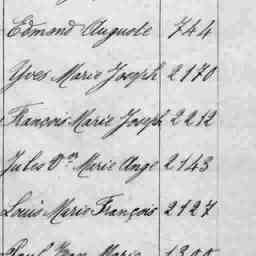 Edmond Auguste 744
Yves Marie Joseph 2170
François Marie Joseph 2212
Jules Vor Marie Ange 2143
Louis Marie François 2127
Paul Jean Marie 1300